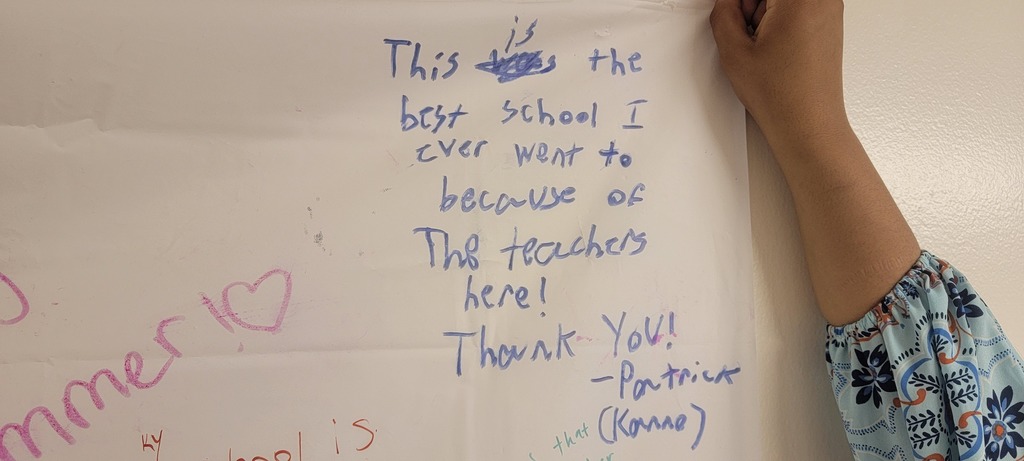 is
This the
best school I
ever went to
because of
The teachers
here!
Thank You!
-Patrick
(Kanne)
mmer!
KY
is
that